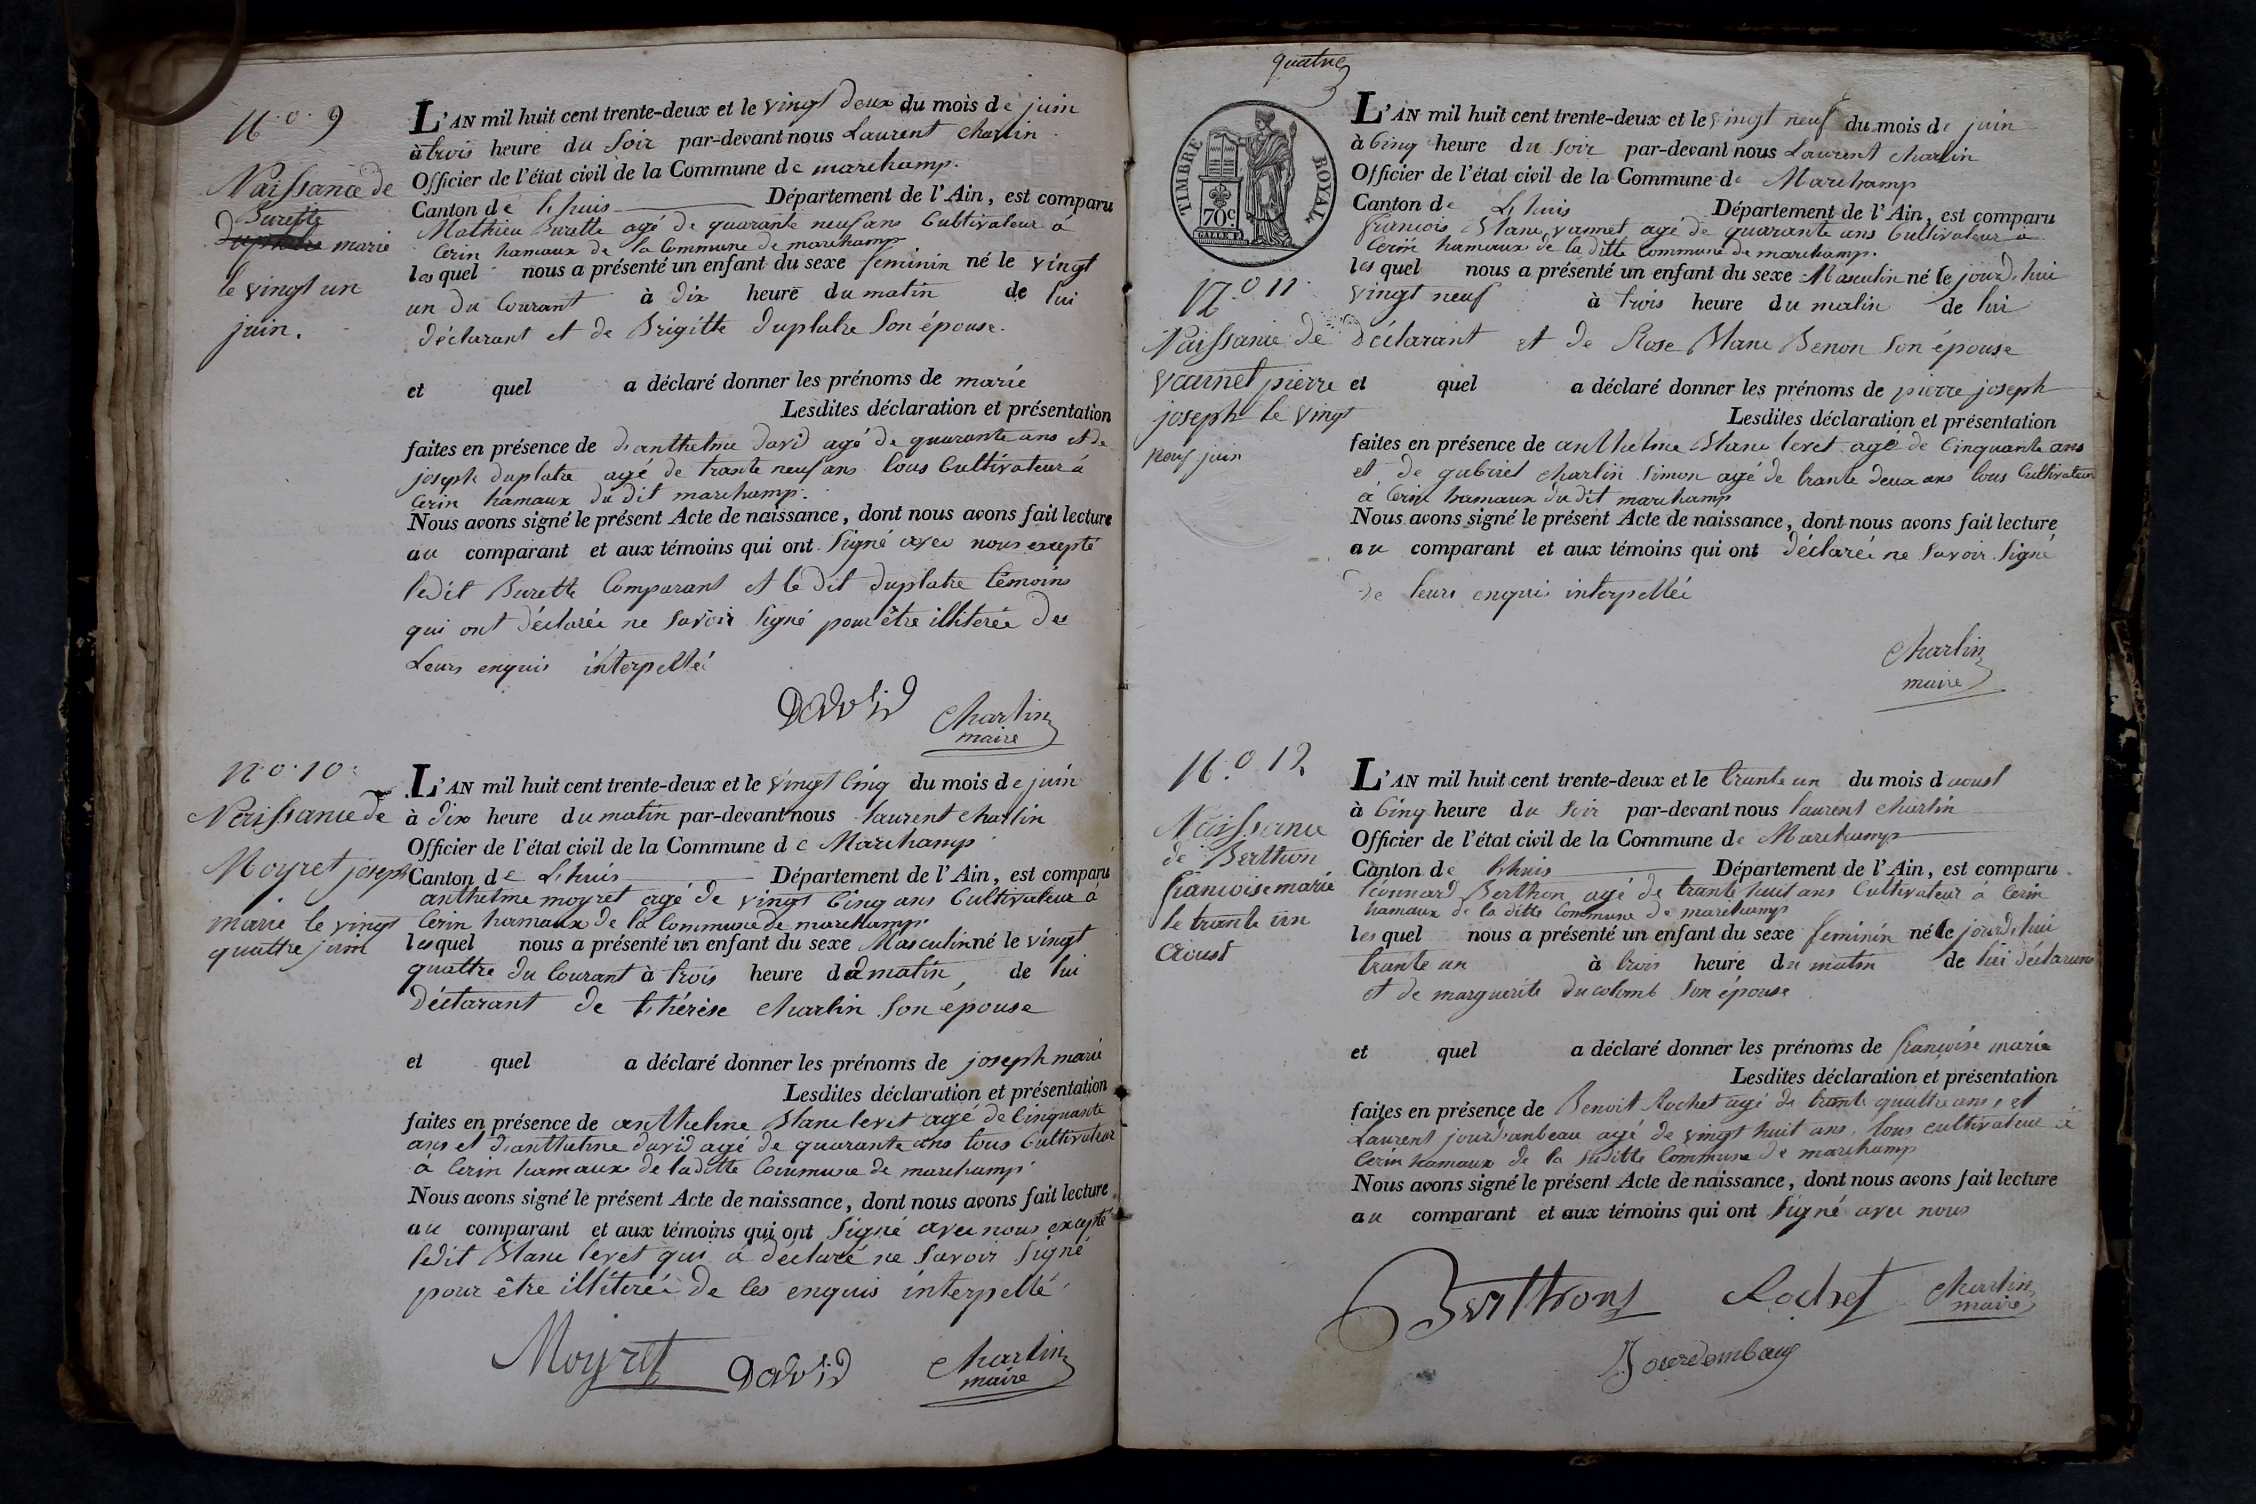 N.o. 9
Naissance de
Burette
marie
le vingt un
juin.
L'AN mil huit cent trente-deux et le vingt deux du mois de juin
à trois heure du soir par-devant nous Laurent Charlin
Officier de l'état civil de la Commune de marchamp.
Canton de Lhuis Département de l'Ain, est comparu
Mathieu Burette agé de quarante neuf ans Cultivateur à
Cerin hamaux de la Commune de marchamp
lesquel nous a présenté un enfant du sexe feminin né le vingt
un du Courant à dix heure du matin de lui
déclarant et de Brigitte duplatre son épouse.
et quel a déclaré donner les prénoms de marie
Lesdites déclaration et présentation
faites en présence de d'anthelme david agé de quarante ans et de
joseph duplatre agé de trante neuf ans tous Cultivateur à
Cerin hamaux du dit marchamp.
Nous avons signé le présent Acte de naissance, dont nous avons fait lecture
au comparant et aux témoins qui ont signé avec nous excepté
ledit Burette Comparant et le dit duplatre témoins
qui ont déclarée ne savoir signé pour être illiterée de
Leurs enquis interpellé
DAVID
Charlin
maire
N.o. 10
Naissance de
Moyret joseph
marie le vingt
quattre juin
L'AN mil huit cent trente-deux et le vingt Cinq du mois de juin
à dix heure du matin par-devant nous laurent charlin
Officier de l'état civil de la Commune de Marchamp
Canton de Lhuis Département de l'Ain, est comparu
anthelme moyret agé de vingt Cinq ans Cultivateur à
Cerin hamaux de la Commune de marchamp
lesquel nous a présenté un enfant du sexe Masculin né le vingt
quattre du Courant à trois heure du matin, de lui
Déclarant de thérèse charlin son épouse
et quel a déclaré donner les prénoms de joseph marie
Lesdites déclaration et présentation
faites en présence de anthelme Blanc levet agé de Cinquante
ans et d'anthelme david agé de quarante ans tous Cultivateur
à Cerin hamaux de laditte Commune de marchamp
Nous avons signé le présent Acte de naissance, dont nous avons fait lecture
au comparant et aux témoins qui ont signé avec nous excepté
ledit Blanc levet qui a déclaré ne savoir signé
pour être illiterée de les enquis interpellé
Moyret
DAVID
Charlin
maire
quatre
TIMBRE ROYAL
70c
N.o 11
Naissance de
vannet pierre
joseph le vingt
neuf juin
L'AN mil huit cent trente-deux et le vingt neuf du mois de juin
à Cinq heure du soir par-devant nous Laurent charlin
Officier de l'état civil de la Commune de Marchamp
Canton de Lhuis Département de l'Ain, est comparu
francois Blanc vannet agé de quarante ans Cultivateur à
Cerin hamaux de la ditte Commune de marchamp.
lesquel nous a présenté un enfant du sexe Masculin né le jourd'hui
vingt neuf à trois heure du matin de lui
Déclarant et de Rose Blanc Benon son épouse
et quel a déclaré donner les prénoms de pierre joseph
Lesdites déclaration et présentation
faites en présence de anthelme Blanc levet agé de Cinquante ans
et de gabriel charlin Simon agé de trante deux ans tous Cultivateur
à Cerin hamaux du dit marchamp
Nous avons signé le présent Acte de naissance, dont nous avons fait lecture
au comparant et aux témoins qui ont déclarée ne savoir signé
de leurs enquis interpellée
Charlin
maire
N.o 12
Naissance
de Berthon
francoise marie
le trante un
Aoust
L'AN mil huit cent trente-deux et le trante un du mois d aoust
à Cinq heure du soir par-devant nous laurent charlin
Officier de l'état civil de la Commune de Marchamp
Canton de Lhuis Département de l'Ain, est comparu
léonnard Berthon agé de trante huit ans Cultivateur à Cerin
hamaux de la ditte Commune de marchamp
lesquel nous a présenté un enfant du sexe feminin né le jourd'hui
trante un à trois heure du matin de lui déclarant
et de marguerite ducolomb son épouse
et quel a déclaré donner les prénoms de francoise marie
Lesdites déclaration et présentation
faites en présence de Benoit Rochet agé de trante quattre ans, et
Laurent jourd'anbeau agé de vingt huit ans, tous cultivateur à
Cerin hamaux de la suditte Commune de marchamp
Nous avons signé le présent Acte de naissance, dont nous avons fait lecture
au comparant et aux témoins qui ont signé avec nous
Berthon
Rochet
Charlin
maire